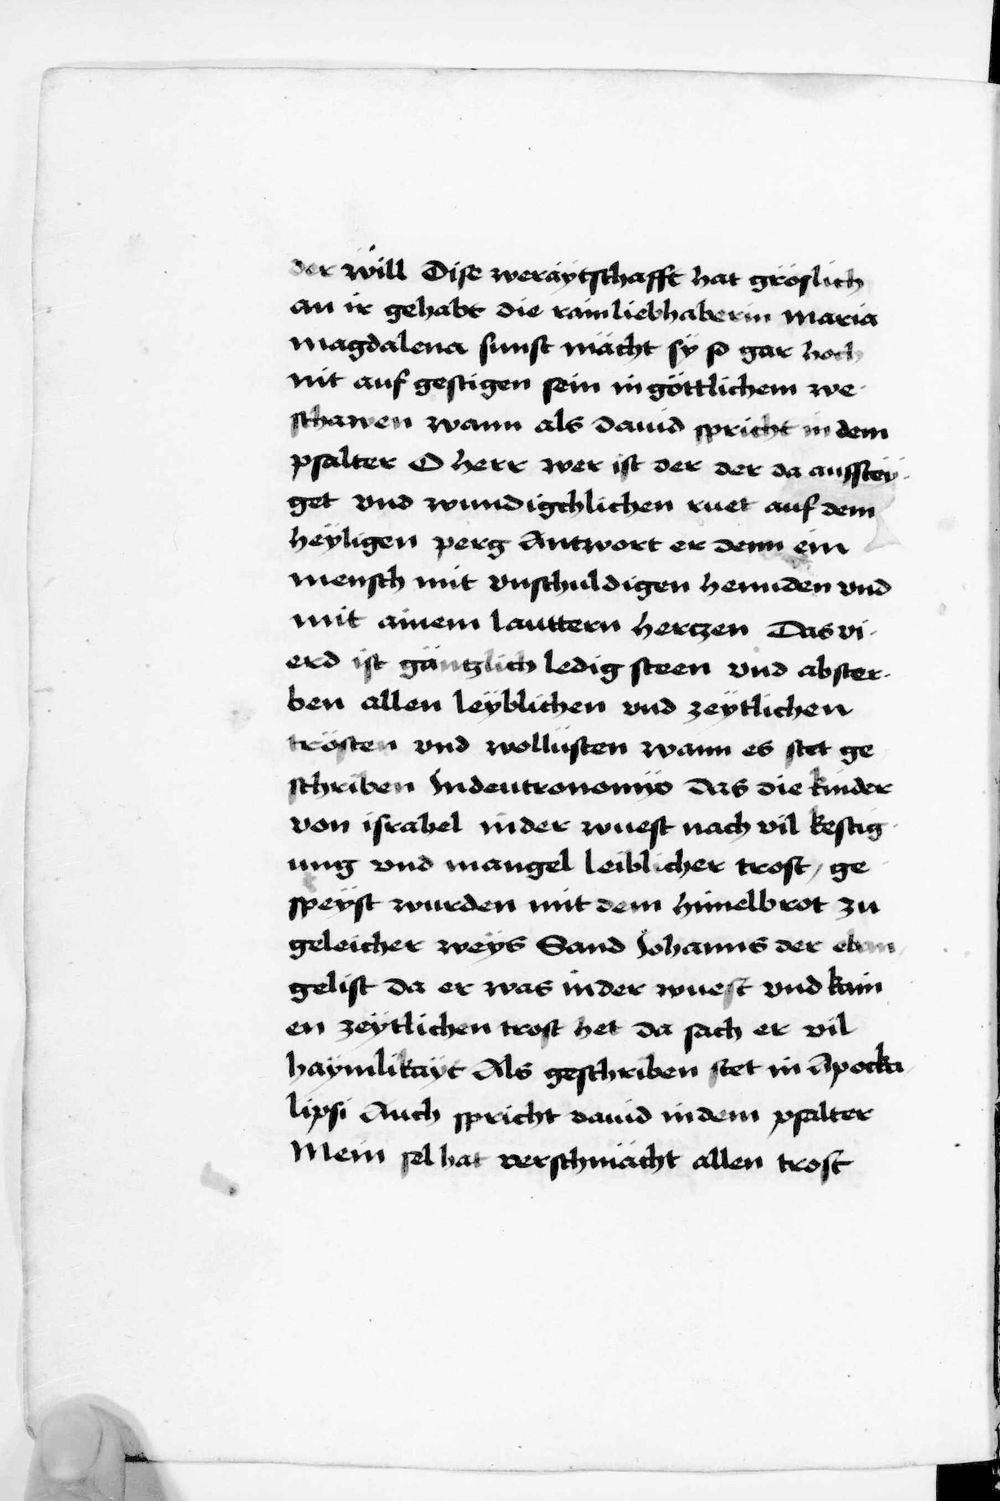 der will Dise weraytschafft hat gröslich
an ir gehabt die rain liebhaberin maria
magdalena sunst mächt sÿ so gar hoch
nit auf gestigen sein in göttlichem we-
schawen wann als dauid spricht in dem
psalter O herr wer ist der der da aufsteÿ-
get vnd wundigchlichen ruet auf dem
heÿligen perg Antwort er denn ein
mensch mit vnschuldigen hennden vnd
mit ainem lauttern hertzen Das vi-
erd ist gäntzlich ledig steen vnd abster-
ben allen leÿblichen vnd zeÿtlichen
trösten vnd wollüsten wann es stet ge
schriben Indeutronomÿo das die kinder
von israhel in der wuest nach vil kestig-
ung vnd mangel leiblicher trost / ge
speÿst wurden mit dem himelbrot zu
geleicher weÿs Sand Johanns der eban-
gelist da er was in der wuest vnd kain
en zeÿtlichen trost het da sach er vil
haÿmlikäÿt Als geschriben stet in Apocka-
lipsi Auch spricht dauid in dem psalter
Mein sel hat verschmächt allen trost